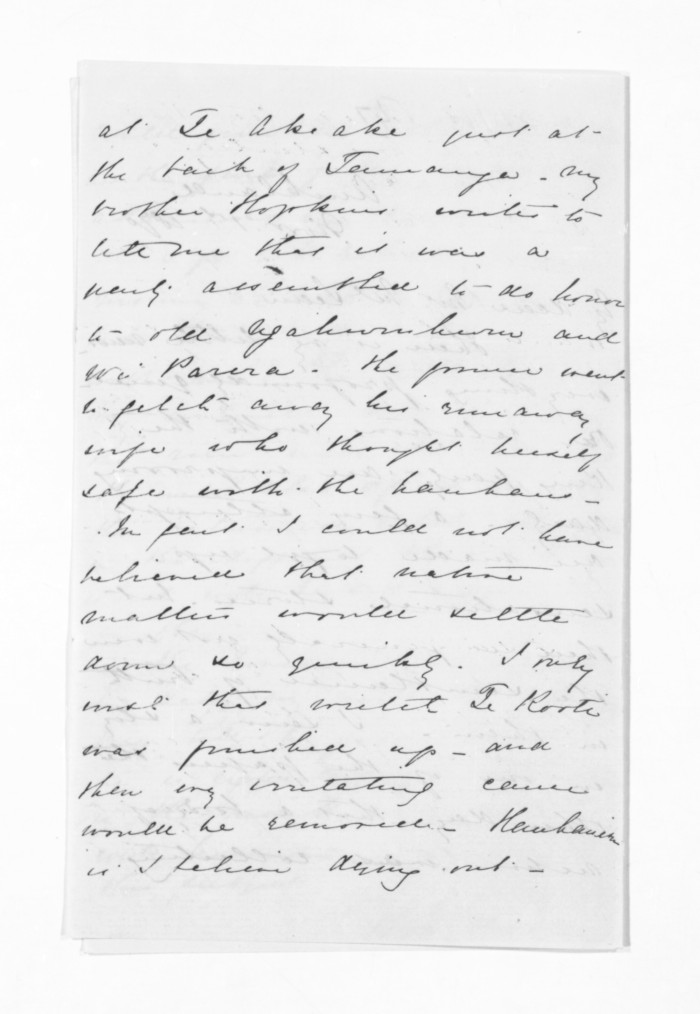 at Te Ake ake just at
the back of Tauranga - my
brother Hopkins writes to
tell me that it was a
party assembled to do honor
to old Ngahuruhuru and
Wi Parera. The former went
to fetch away his runaway
wife who thought herself
safe with the hauhaus -
In fact I could not have
believed that native
matters would settle
down so quickly. I only
wish that wretch Te Kooti
was finished up - and
then any irritating cause
would be removed - Hauhauism
is I believe dying out -